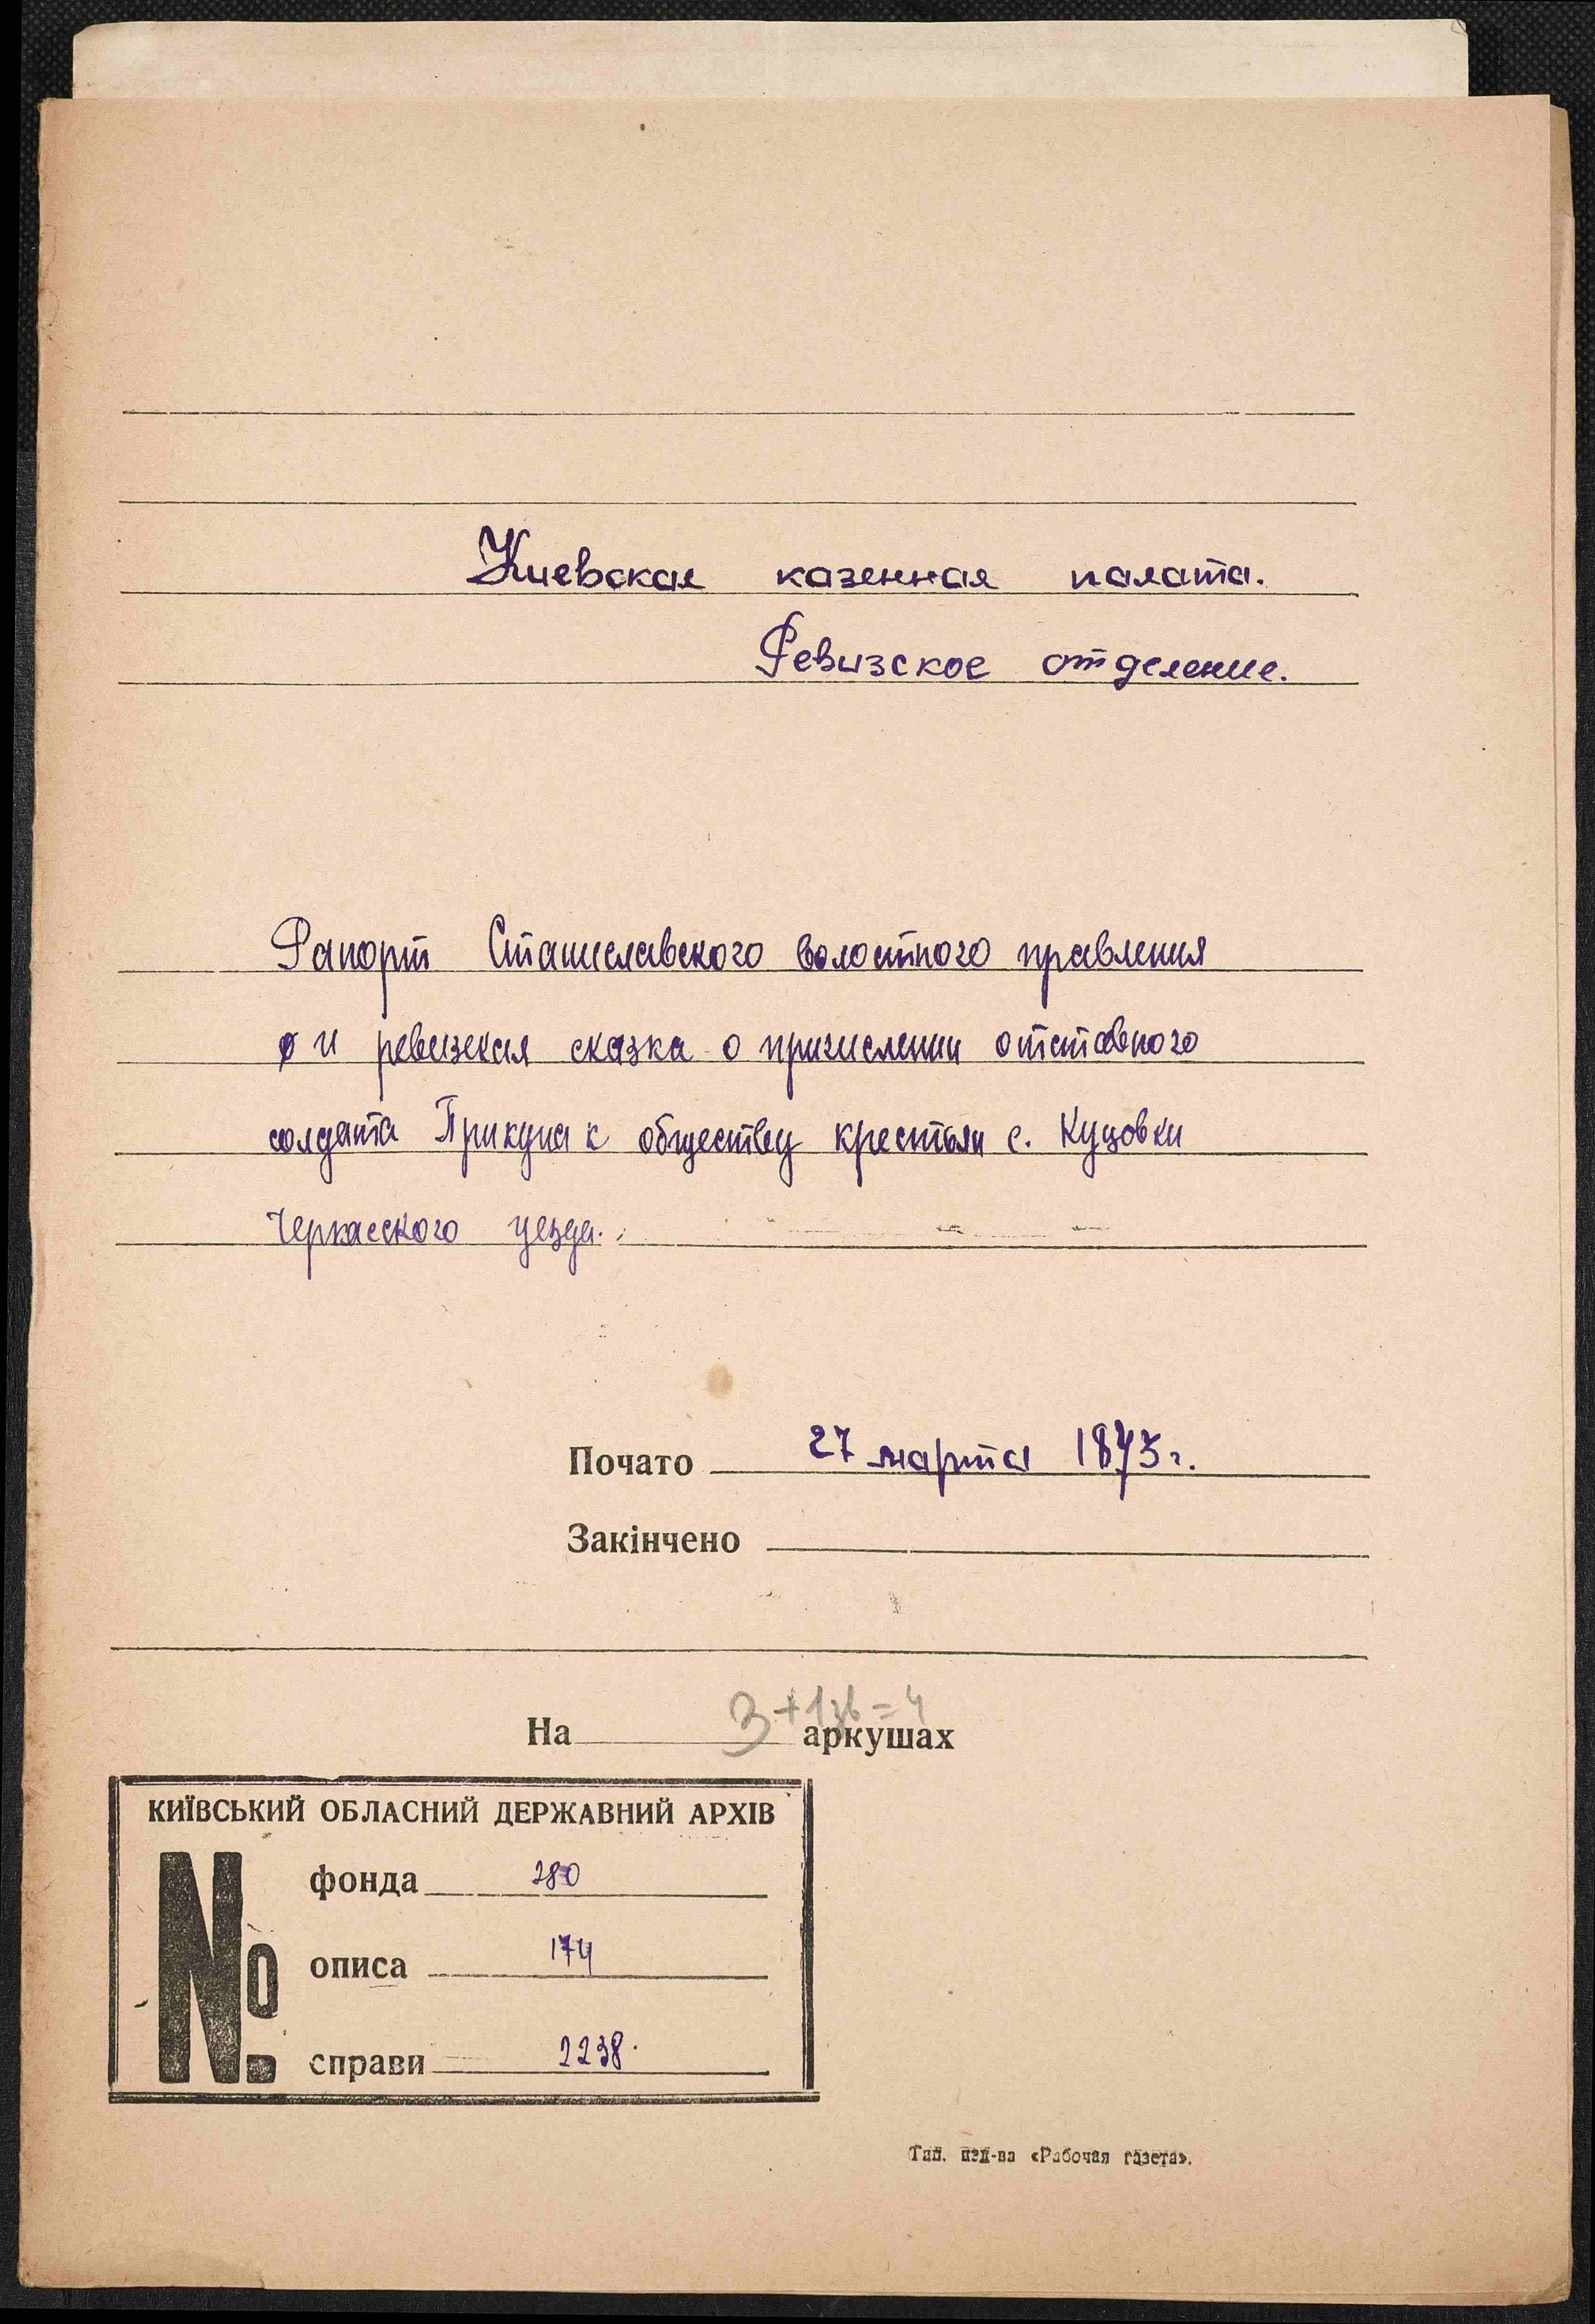 Киевская казенная палата.
Ревизское отделение.
Рапорт Станиславского волостного правления
и ревизская сказка о причислении отставного
солдата Прикупа к обществу крестьян с. Куцовки
Черкасского уезда.
Почато 27 марта 1873 г.
Закінчено
На 3+1зв=4 аркушах
КИЇВСЬКИЙ ОБЛАСНИЙ ДЕРЖАВНИЙ АРХІВ
№
фонда 280
описа 174
справи 2238.
Тип. изд-ва «Рабочая газета».